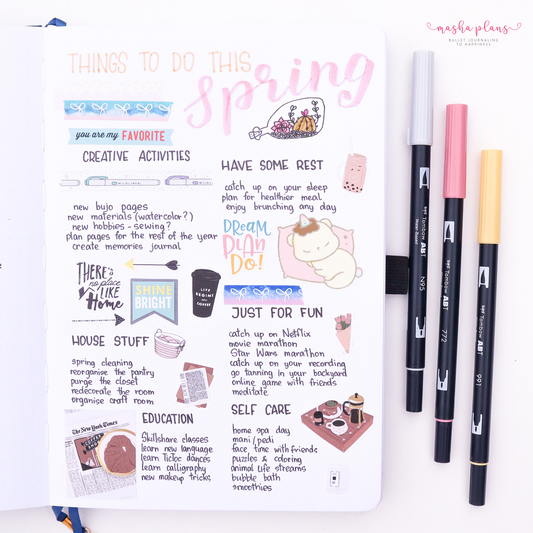 masha plans
BULLET JOURNALING
TO HAPPINESS
THINGS TO DO THIS
Spring
you are my FAVORITE
CREATIVE ACTIVITIES
new bujo pages
new materials (watercolor?)
new hobbies - sewing?
plan pages for the rest of the year
create memories journal
THERE'S
no place
LIKE
Home
SHINE
BRIGHT
LIFE
BEGINS
COFFEE
HOUSE STUFF
spring cleaning
reorganise the pantry
purge the closet
redecorate the room
organise craft room
The New York Times
EDUCATION
Skillshare classes
learn new language
learn TicToc dances
learn calligraphy
new makeup tricks
HAVE SOME REST
catch up on your sleep
plan for healthier meal
enjoy brunching any day
DREAM
PLAN
DO!
JUST FOR FUN
catch up on Netflix
movie marathon
Star Wars marathon
catch up on your recording
go tanning in your backyard
online game with friends
meditate
SELF CARE
home spa day
mani/pedi
face time with friends
puzzles & coloring
animal life streams
bubble bath
smoothies
Tombow ABT
N95
Tombow ABT
772
Tombow ABT
991